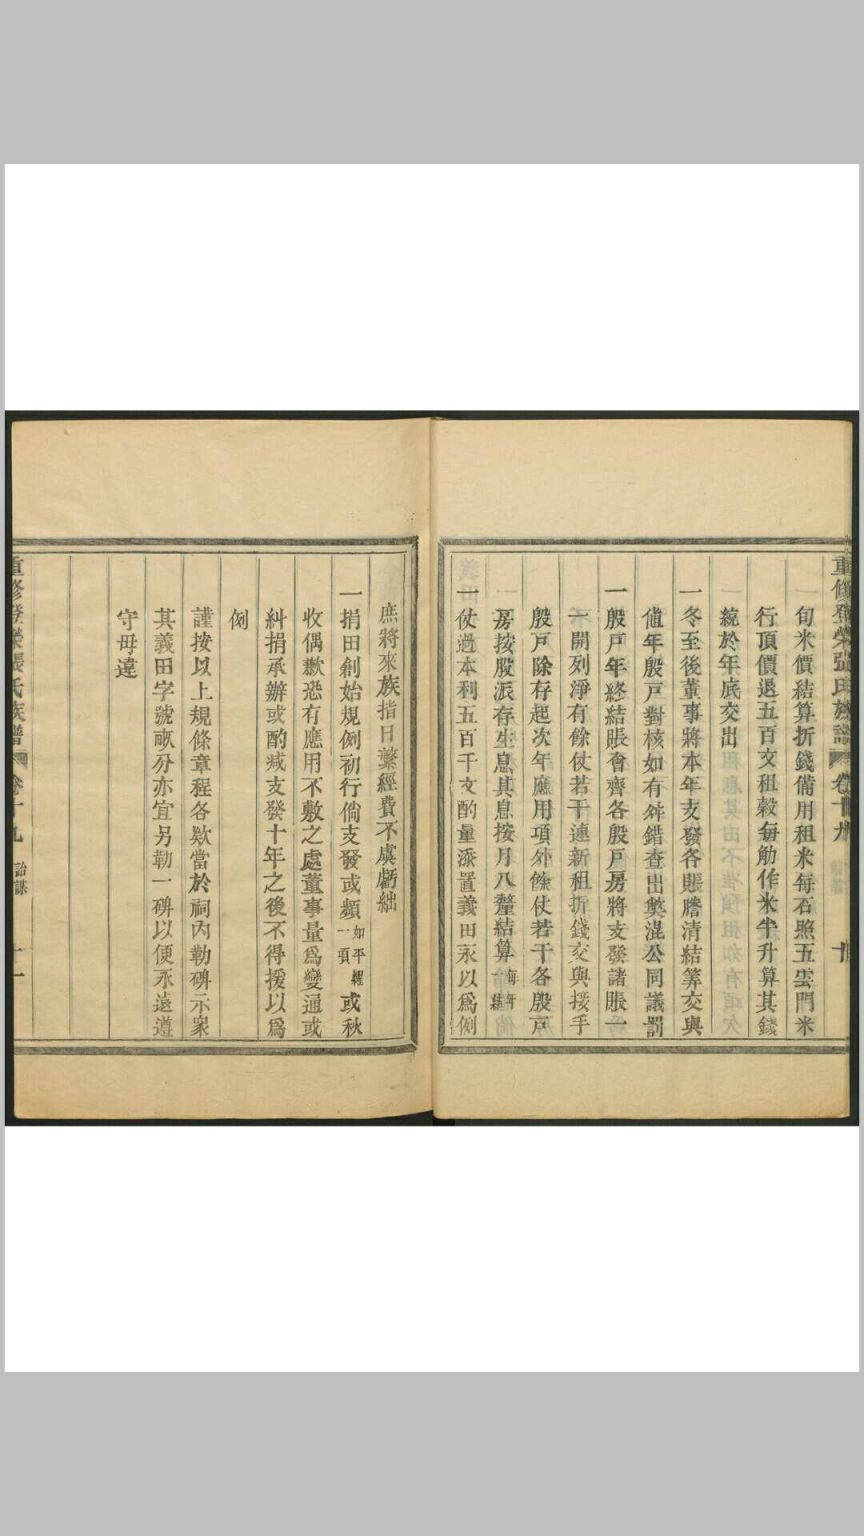 重修登榮張氏族譜 卷十九 十
旬米價結算折錢備用租米每石照五雲門米
行頂價退五百文租穀每觔作米半升算其錢
統於年底交出
一冬至後董事將本年支發各賬謄清結筭交與
值年殷戸對核如有舛錯查出獘混公同議罰
一殷戸年終結賬會齊各殷戸房將支發諸賬一
一開列淨有餘仗若干連新租折錢交與接手
殷戸除存起次年應用項外餘仗若干各殷戸
房按股派存生息其息按月八釐結算
一仗過本利五百千文酌量添置義田永以爲例
庶將來族指日繁經費不虞虧絀
一捐田創始規例初行倘支發或頻如平糶一項或秋
收偶歉恐有應用不敷之處董事量爲變通或
糾捐承辦或酌减支發十年之後不得援以爲
例
謹按以上規條章程各欵當於祠內勒碑示衆
其義田字號畝分亦宜另勒一碑以便永遠遵
守毋違
重修登榮張氏族譜 卷十九 詒謀 十一